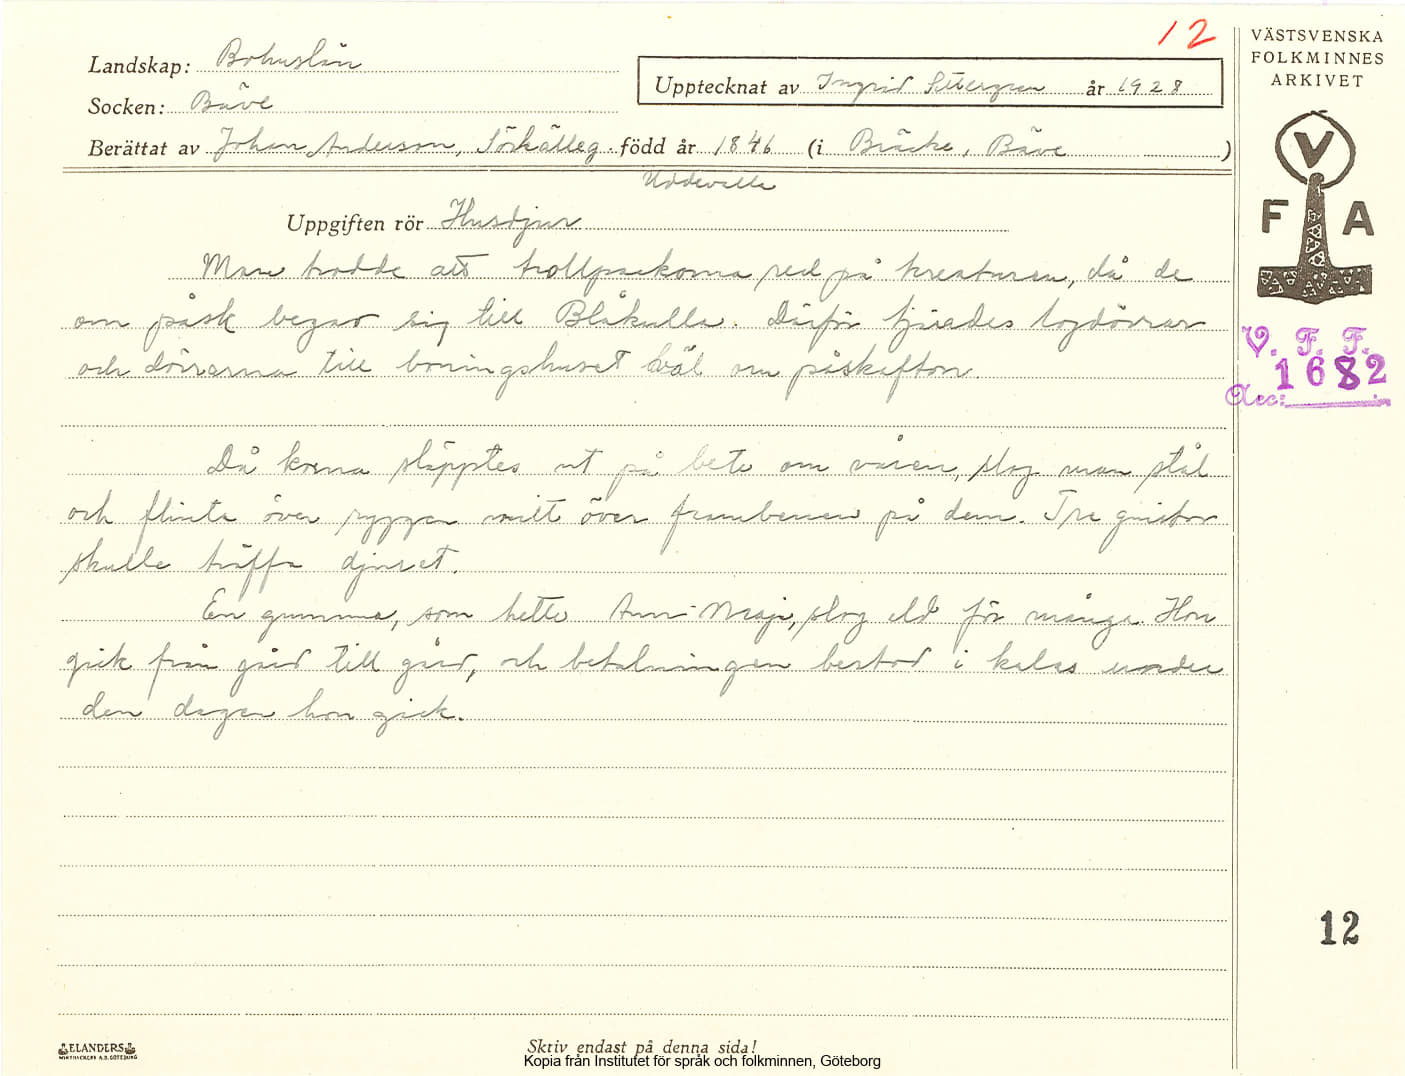 12
VÄSTSVENSKA
FOLKMINNES
ARKIVET
Landskap: Bohuslän
Upptecknat av Ingrid år 1928
Socken: Bäve
Berättat av Johan Anderson, Sörkälleg född år 1846 (i Bräcke, Bäve)
Uddevalla
Uppgiften rör Husdjur
V
F A
Man trodde att trollpackorna red på kreaturen, då de
om påsk begav sig till Blåkulla. Därför tjärades logdörrar
och dörrarna till boningshuset väl om påskafton.
V. F. F.
1682
Acc:
Då korna släpptes ut på bete om våren, slog man stål
och flinta över ryggen mitt över frambenen på dem. Tre gnistor
skulle träffa djuret.
En gumma, som hette Ann-Maja, slog eld för många. Hon
gick från gård till gård, och betalningen bestod i kalas under
den dagen hon gick.
12
ELANDERS
Skriv endast på denna sida!
Kopia från Institutet för språk och folkminnen, Göteborg